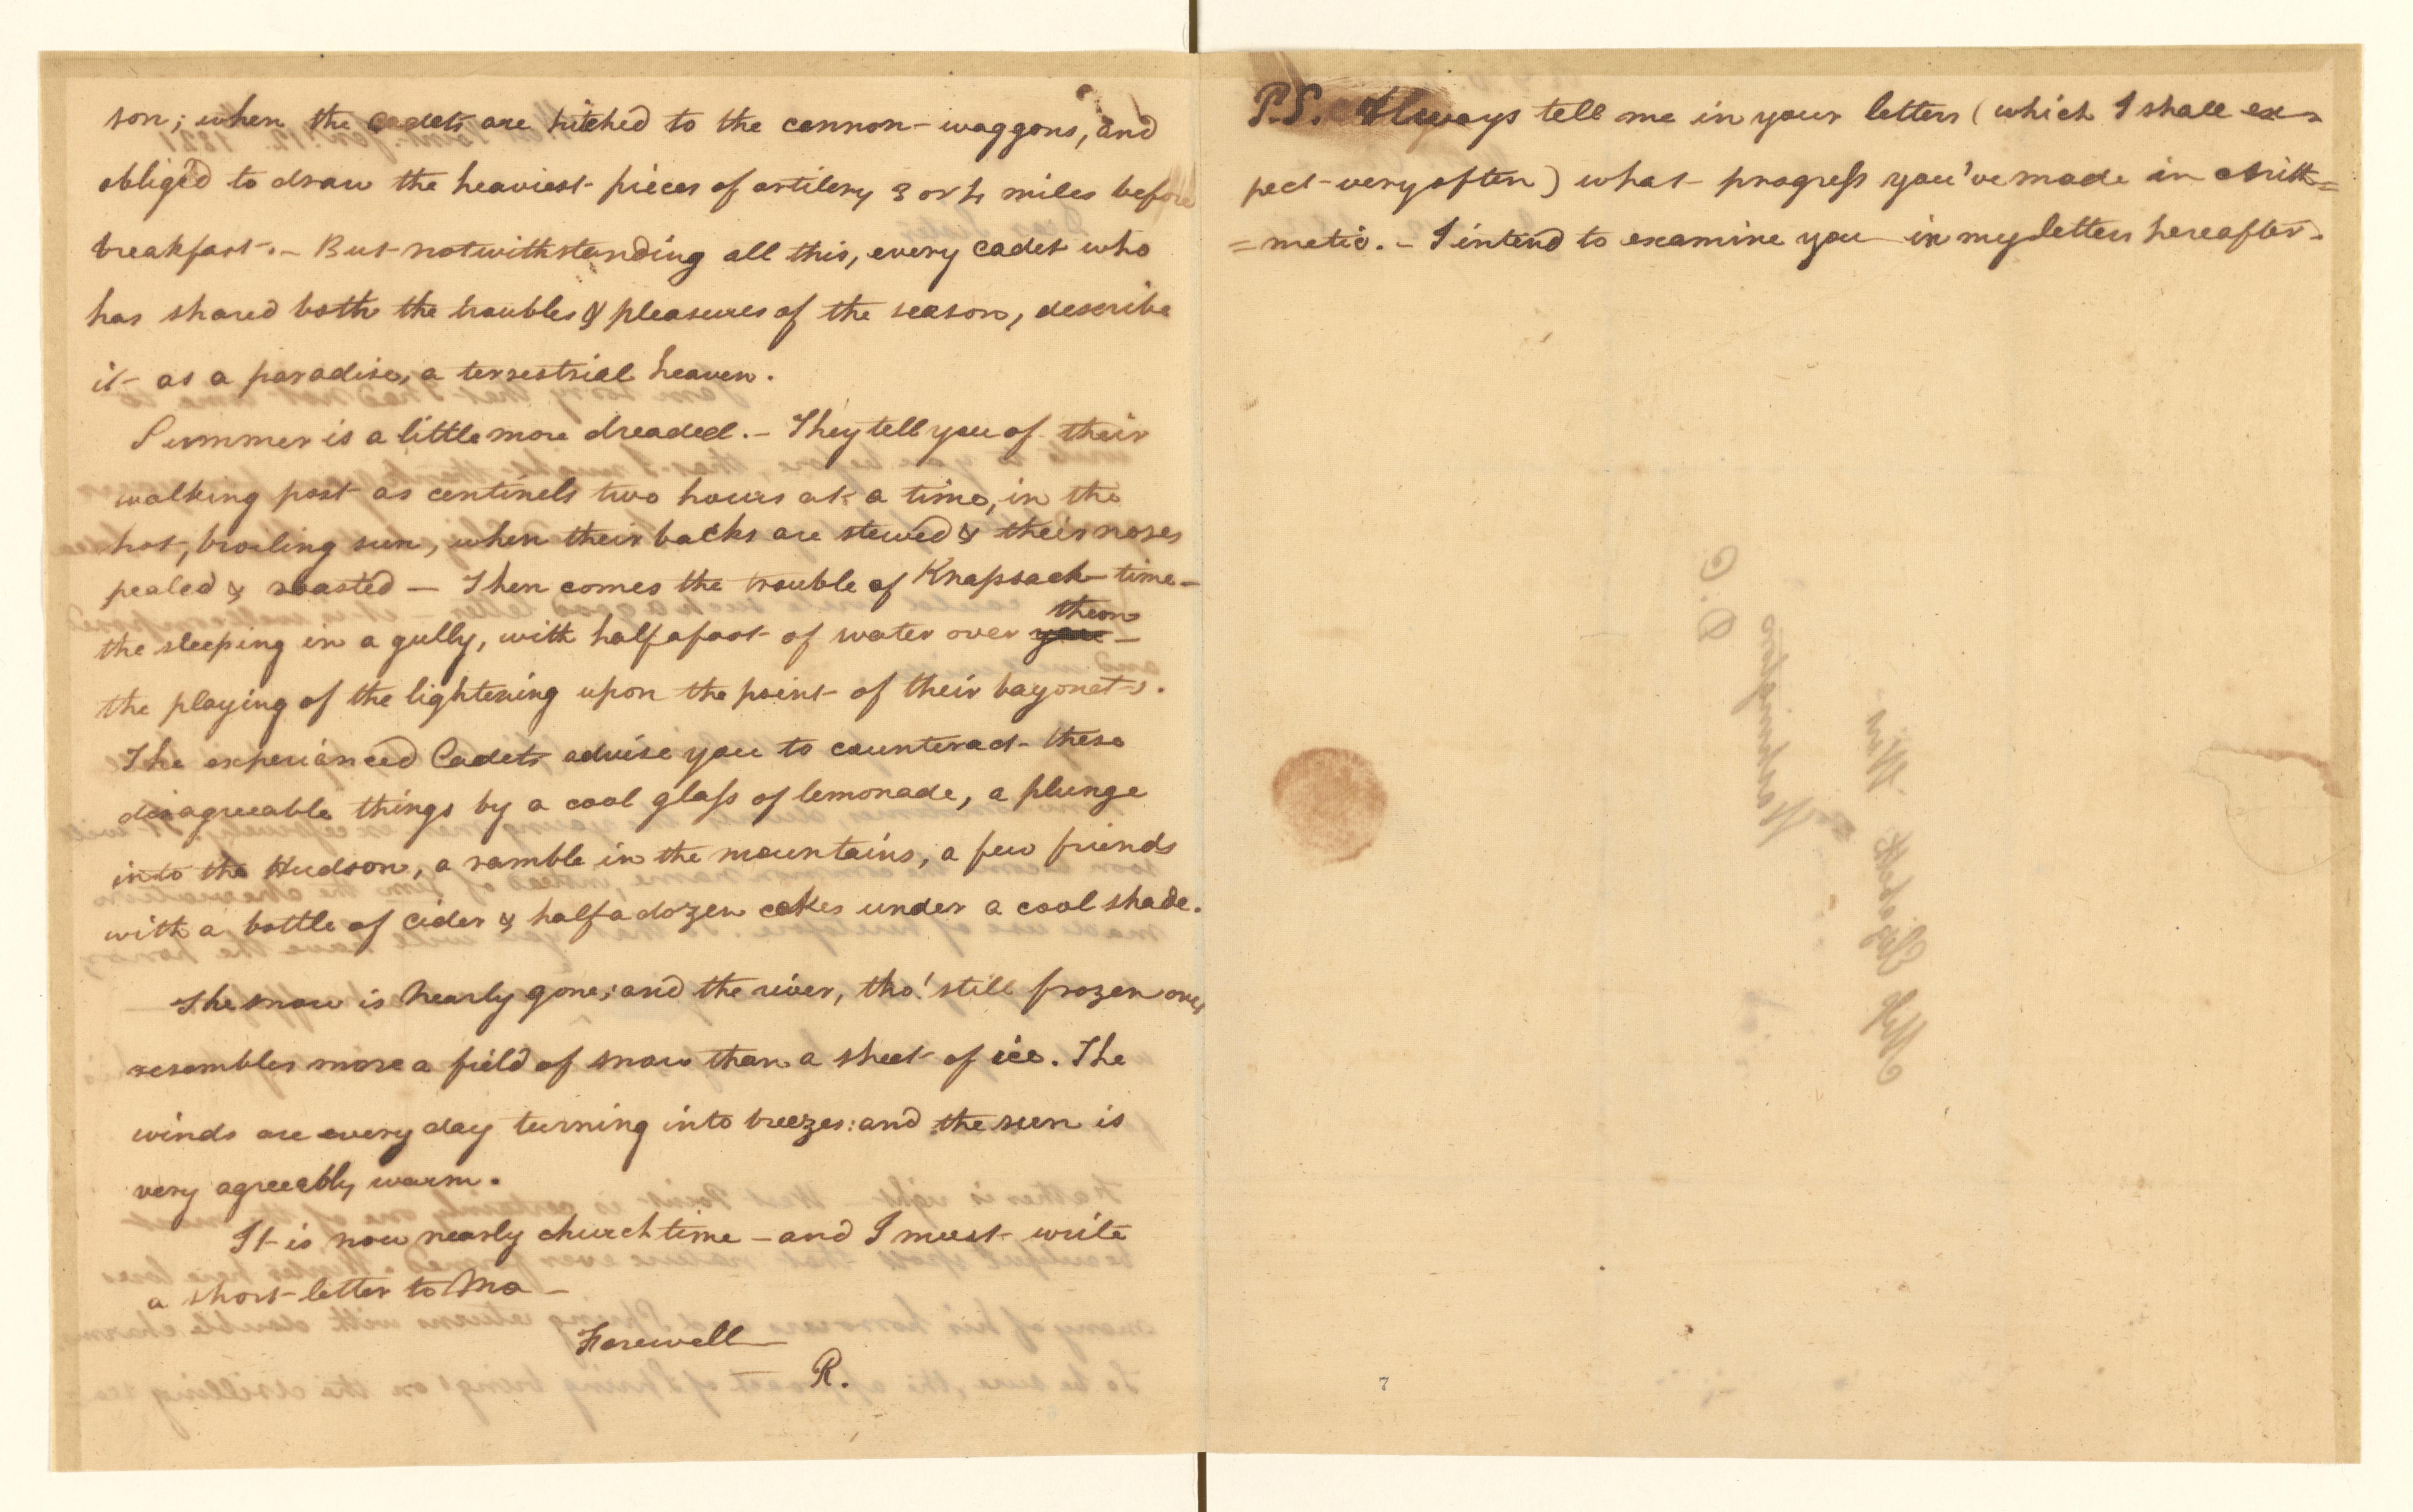 son; when the cadets are hitched to the cannon-waggons, and
obliged to draw the heaviest pieces of artilery 3 or 4 miles before
breakfast. - But notwithstanding all this, every cadet who
has shared both the troubles & pleasures of the season, describe
it as a paradise, a terrestrial heaven.
Summer is a little more dreaded. - They tell you of their
walking post as centinels two hours at a time, in the
hot, broiling sun, when their backs are stewed & their noses
pealed & roasted — Then comes the trouble of Knapsack-time -
them
the sleeping in a gully, with half a foot of water over you -
the playing of the lightening upon the point of their bayonets.
The experianced Cadets advise you to counteract these
disagreeable things by a cool glass of lemonade, a plunge
into the Hudson, a ramble in the mountains, a few friends
with a bottle of cider & half a dozen cakes under a cool shade.
The snow is nearly gone; and the river, tho' still frozen over,
resembles more a field of snow than a sheet of ice. The
winds are every day turning into breezes: and the sun is
very agreeably warm.
It is now nearly church time - and I must write
a short letter to Ma -
Farewell
R.
P.S. Always tell me in your letters (which I shall ex=
pect very often) what progress you've made in Arith=
=metic. - I intend to examine you in my letters hereafter.
Miss Elizabeth Wirt
Washington
D. C.
7